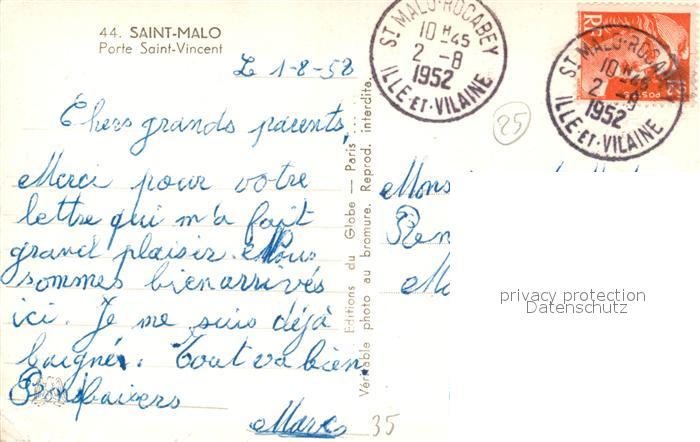 44. SAINT-MALO
Porte Saint-Vincent
Le 1-8-52
Chers grands parents,
Merci pour votre
lettre qui m'a fait
grand plaisir. Nous
sommes bien arrivés
ici. Je me suis déjà
baigné. Tout va bien
Bons baisers
Marc
35
Editions du Globe — Paris
Véritable photo au bromure. Reprod. interdite
ST MALO-ROCABEY
10 H 45
2 -8
1952
ILLE-ET-VILAINE
25
RF
POSTES
ST MALO-ROCABEY
10 H 45
2 -8
1952
ILLE-ET-VILAINE
Mons
Ren
Ma
privacy protection
Datenschutz